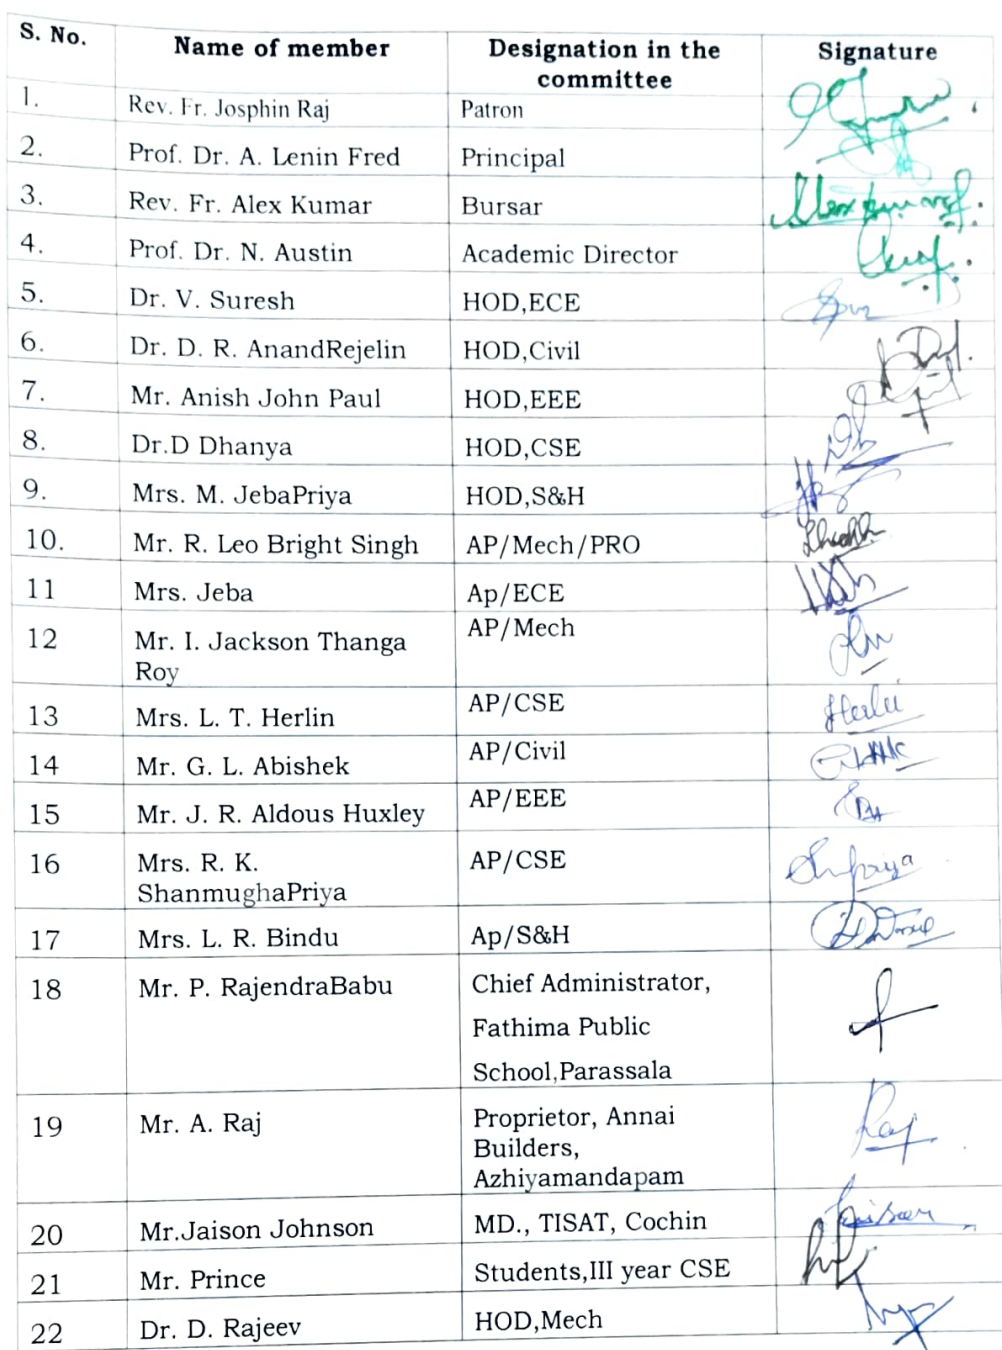 S. No. Name of member Designation in the Signature
committee
1. Rev. Fr. Josphin Raj Patron
2. Prof. Dr. A. Lenin Fred Principal
3. Rev. Fr. Alex Kumar Bursar
4. Prof. Dr. N. Austin Academic Director
5. Dr. V. Suresh HOD,ECE
6. Dr. D. R. AnandRejelin HOD,Civil
7. Mr. Anish John Paul HOD,EEE
8. Dr.D Dhanya HOD,CSE
9. Mrs. M. JebaPriya HOD,S&H
10. Mr. R. Leo Bright Singh AP/Mech/PRO
11 Mrs. Jeba Ap/ECE
12 Mr. I. Jackson Thanga AP/Mech
Roy
13 Mrs. L. T. Herlin AP/CSE
14 Mr. G. L. Abishek AP/Civil
15 Mr. J. R. Aldous Huxley AP/EEE
16 Mrs. R. K. AP/CSE
ShanmughaPriya
17 Mrs. L. R. Bindu Ap/S&H
18 Mr. P. RajendraBabu Chief Administrator,
Fathima Public
School,Parassala
19 Mr. A. Raj Proprietor, Annai Raj
Builders,
Azhiyamandapam
20 Mr.Jaison Johnson MD., TISAT, Cochin
21 Mr. Prince Students,III year CSE
22 Dr. D. Rajeev HOD,Mech